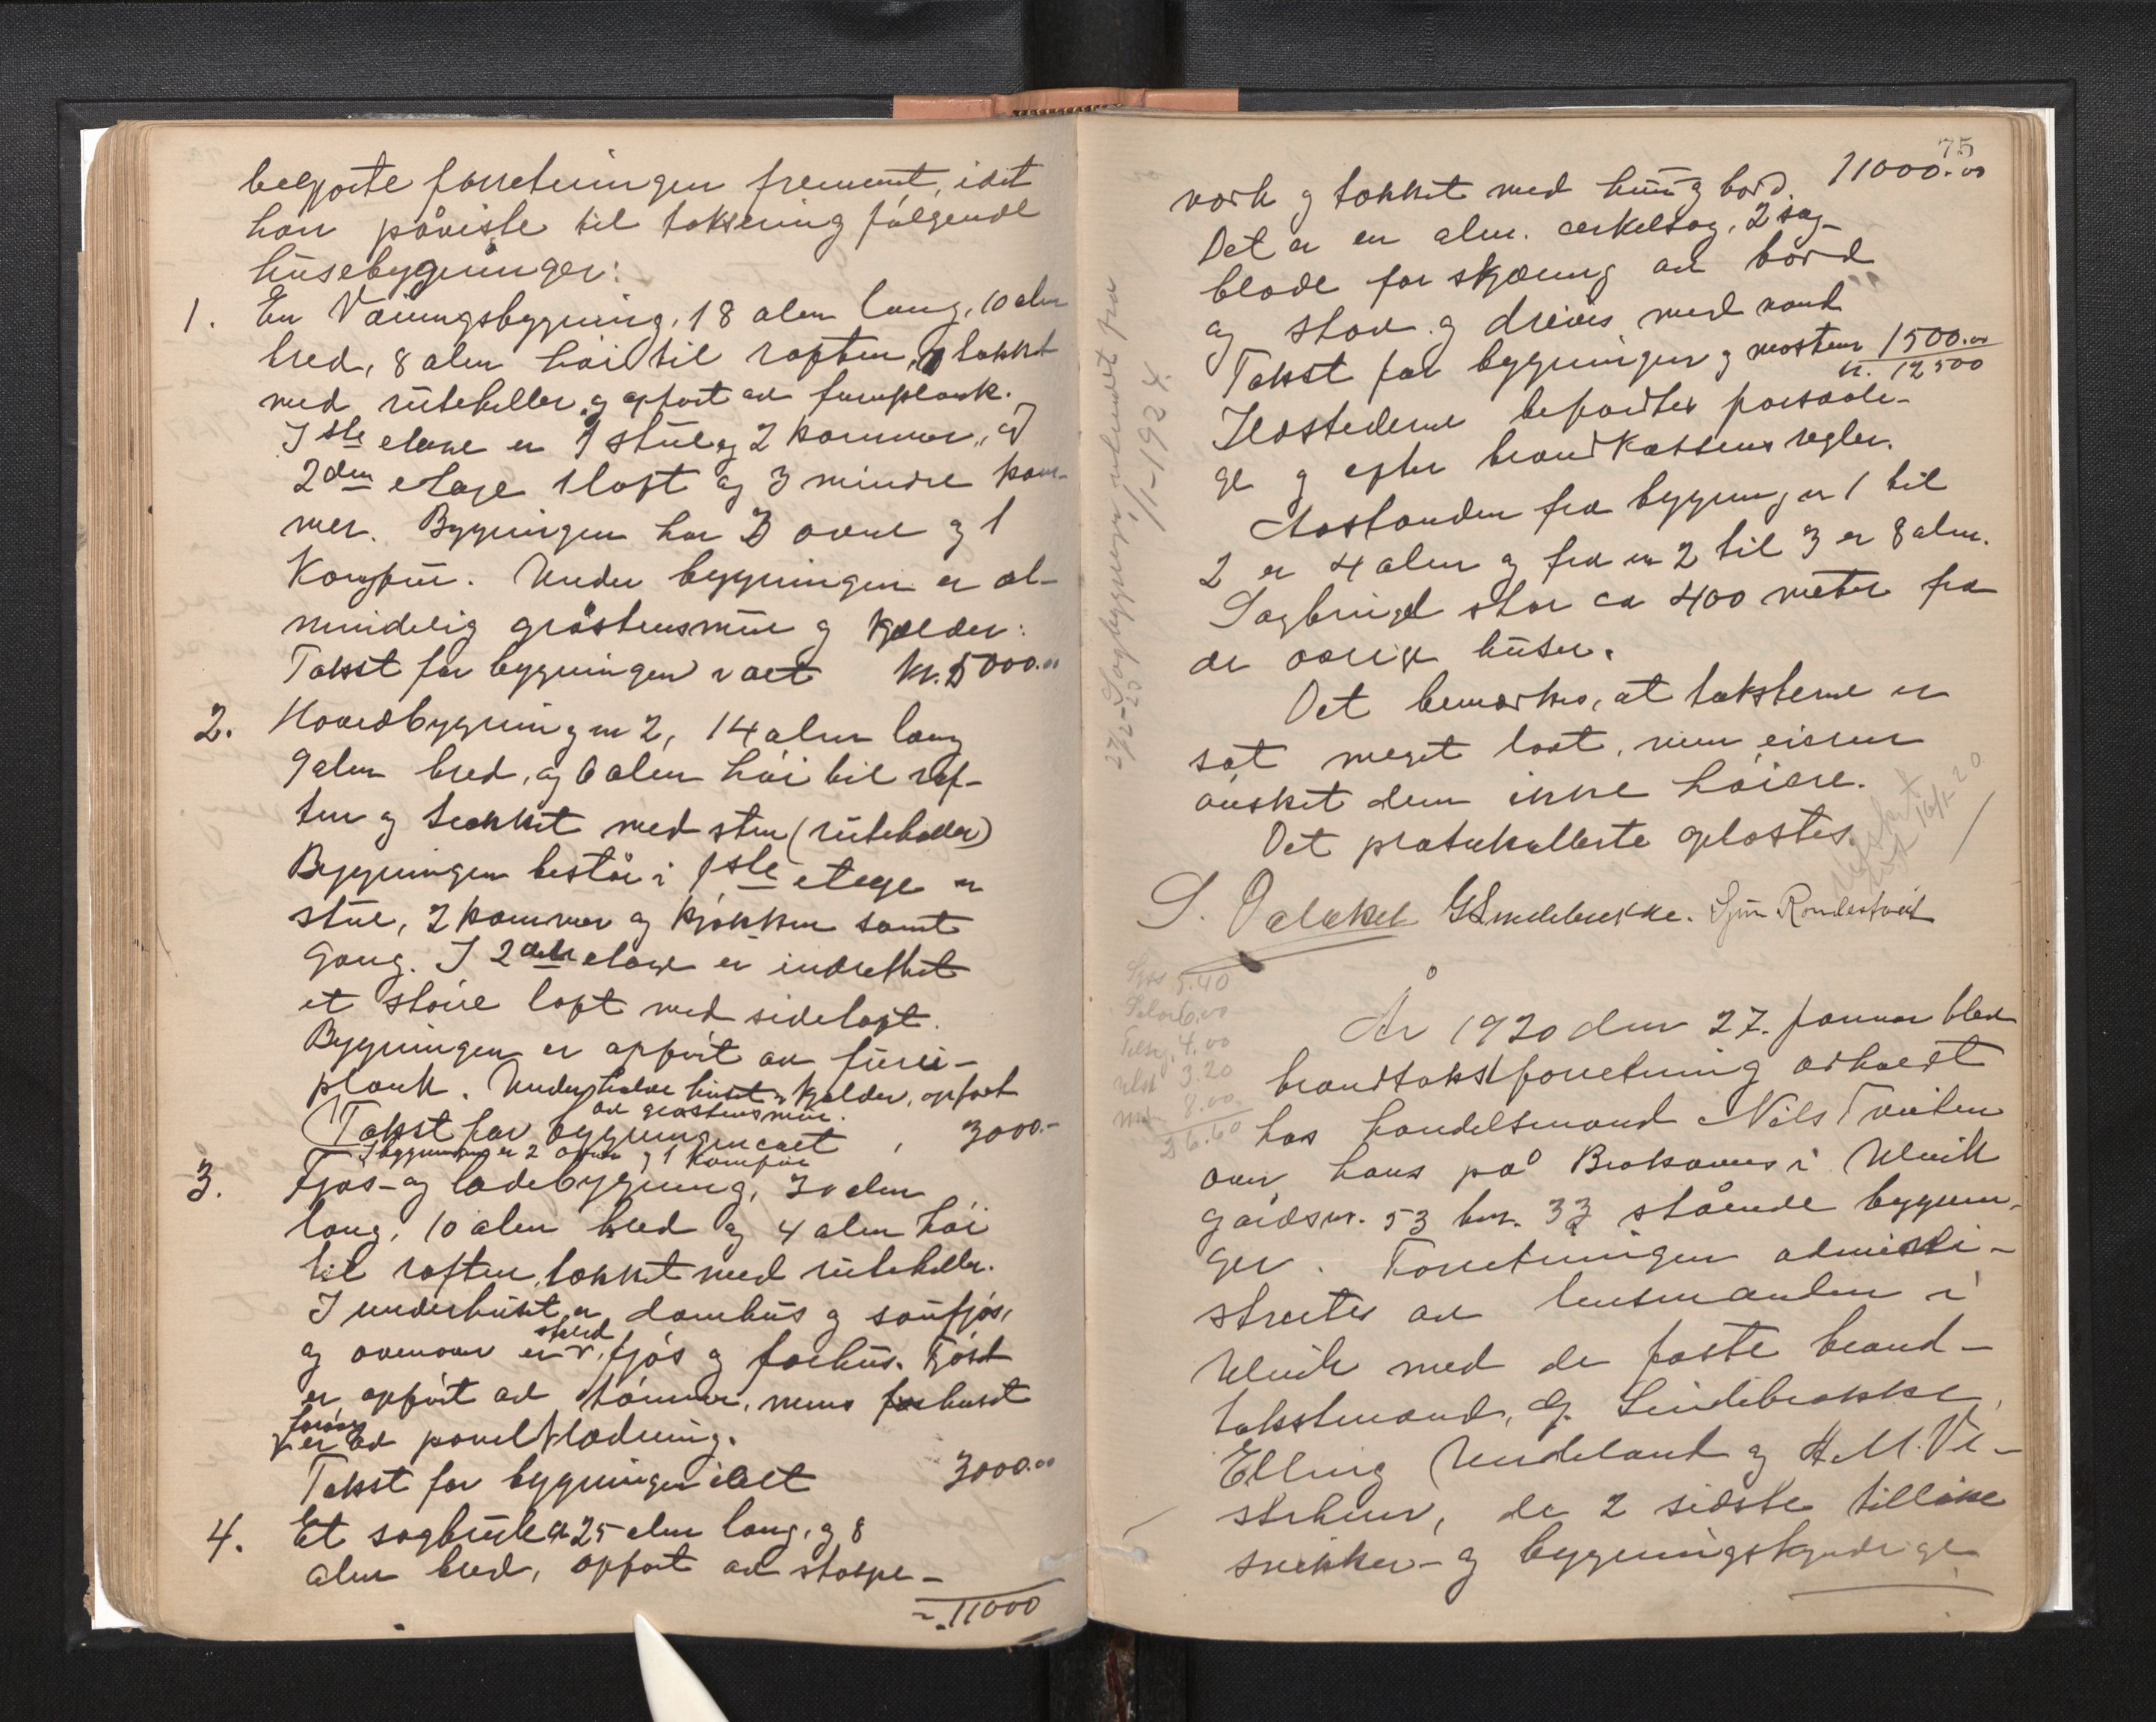 begjærte forretningen fremmet, idet
han påviste til taksering følgende
husebygninger:
1. En Våningsbygning, 18 alen lang, 10 alen
bred, 8 alen høi til raften, takket
med ruteheller og opført av furuplank.
I 1ste etage er 1 stue og 2 kammer, og
2den etage 1 loft og 3 mindre kam-
mer. Bygningen har 3 ovne og 1
Komfur. Under bygningen er al-
mindelig gråstensmur og kjælder:
Takst for bygningen i alt kr. 5000.00
2. Hovedbygning nr 2, 14 alen lang
9 alen bred, og 6 alen høi til raf-
ten og tækket med sten (ruteheller)
Bygningen består i 1ste etage en
stue, 2 kammer og kjøkken samt
Gang. I 2den etage er indrettet
et større loft med sideloft.
Bygningen er opført av furu-
plank. Under halve huset er kjelder, opført
av gråstensmur.
Takst for bygningen i alt 3000.-
I bygningen er 2 ovne og 1 komfur
3. Fjøs- og ladebygning, 30 alen
lang, 10 alen bred og 4 alen høi
til raften, takket med ruteheller.
I underhuset er damhus og saufjøs,
og ovenover er stald, fjøs og forhus. Fjøset
er opført av tømmer, mens forhuset
er av panelklædning.
Takst for bygningen i alt 3000.00
4. Et sagbruk a 25 alen lang, og 8
alen bred, opført av stolpe-
11000
75
verk og takket med hun og bord. 11000.00
Det er en alm. cirkelsag, 2 sag-
blade for skjæring av bord
og stav og drives med vand
Takst for bygningen og masken 1500.00
kr. 12500
Ildstederne befandtes forsvarli-
ge og efter brandkassens regler.
Avstanden fra bygning nr 1 til
2 er 4 alen og fra nr 2 til 3 er 8 alen.
Sagbruget står ca 400 meter fra
de øvrige huser.
Det bemerkes, at taksterne er
sat meget lavt, men eieren
ønsket dem ikke høiere.
Det protokollerte oplæstes.
utskrift 16/1-20
S. Valaker G Lindebrekke. Sjur Rondestveit
27/2-25 Sagbygningen utmeldt fra
1/1-1924.
5.40
6.00
4.00
3.20
8.00
36.60
År 1920 den 27. januar blev
brandtakstforretning avholdt
hos handelsmand Nils Tveiten
over hans på Brakanes i Ulvik
gårdsnr. 53 bnr. 33 stående bygnin-
ger. Forretningen admini-
streertes av lensmanden i
Ulvik med de faste brand-
takstmænd, G. Lindebrække,
Elling Undeland og H. M. Ve-
strheim, de 2 sidste tillike
snekker- og bygningskyndige